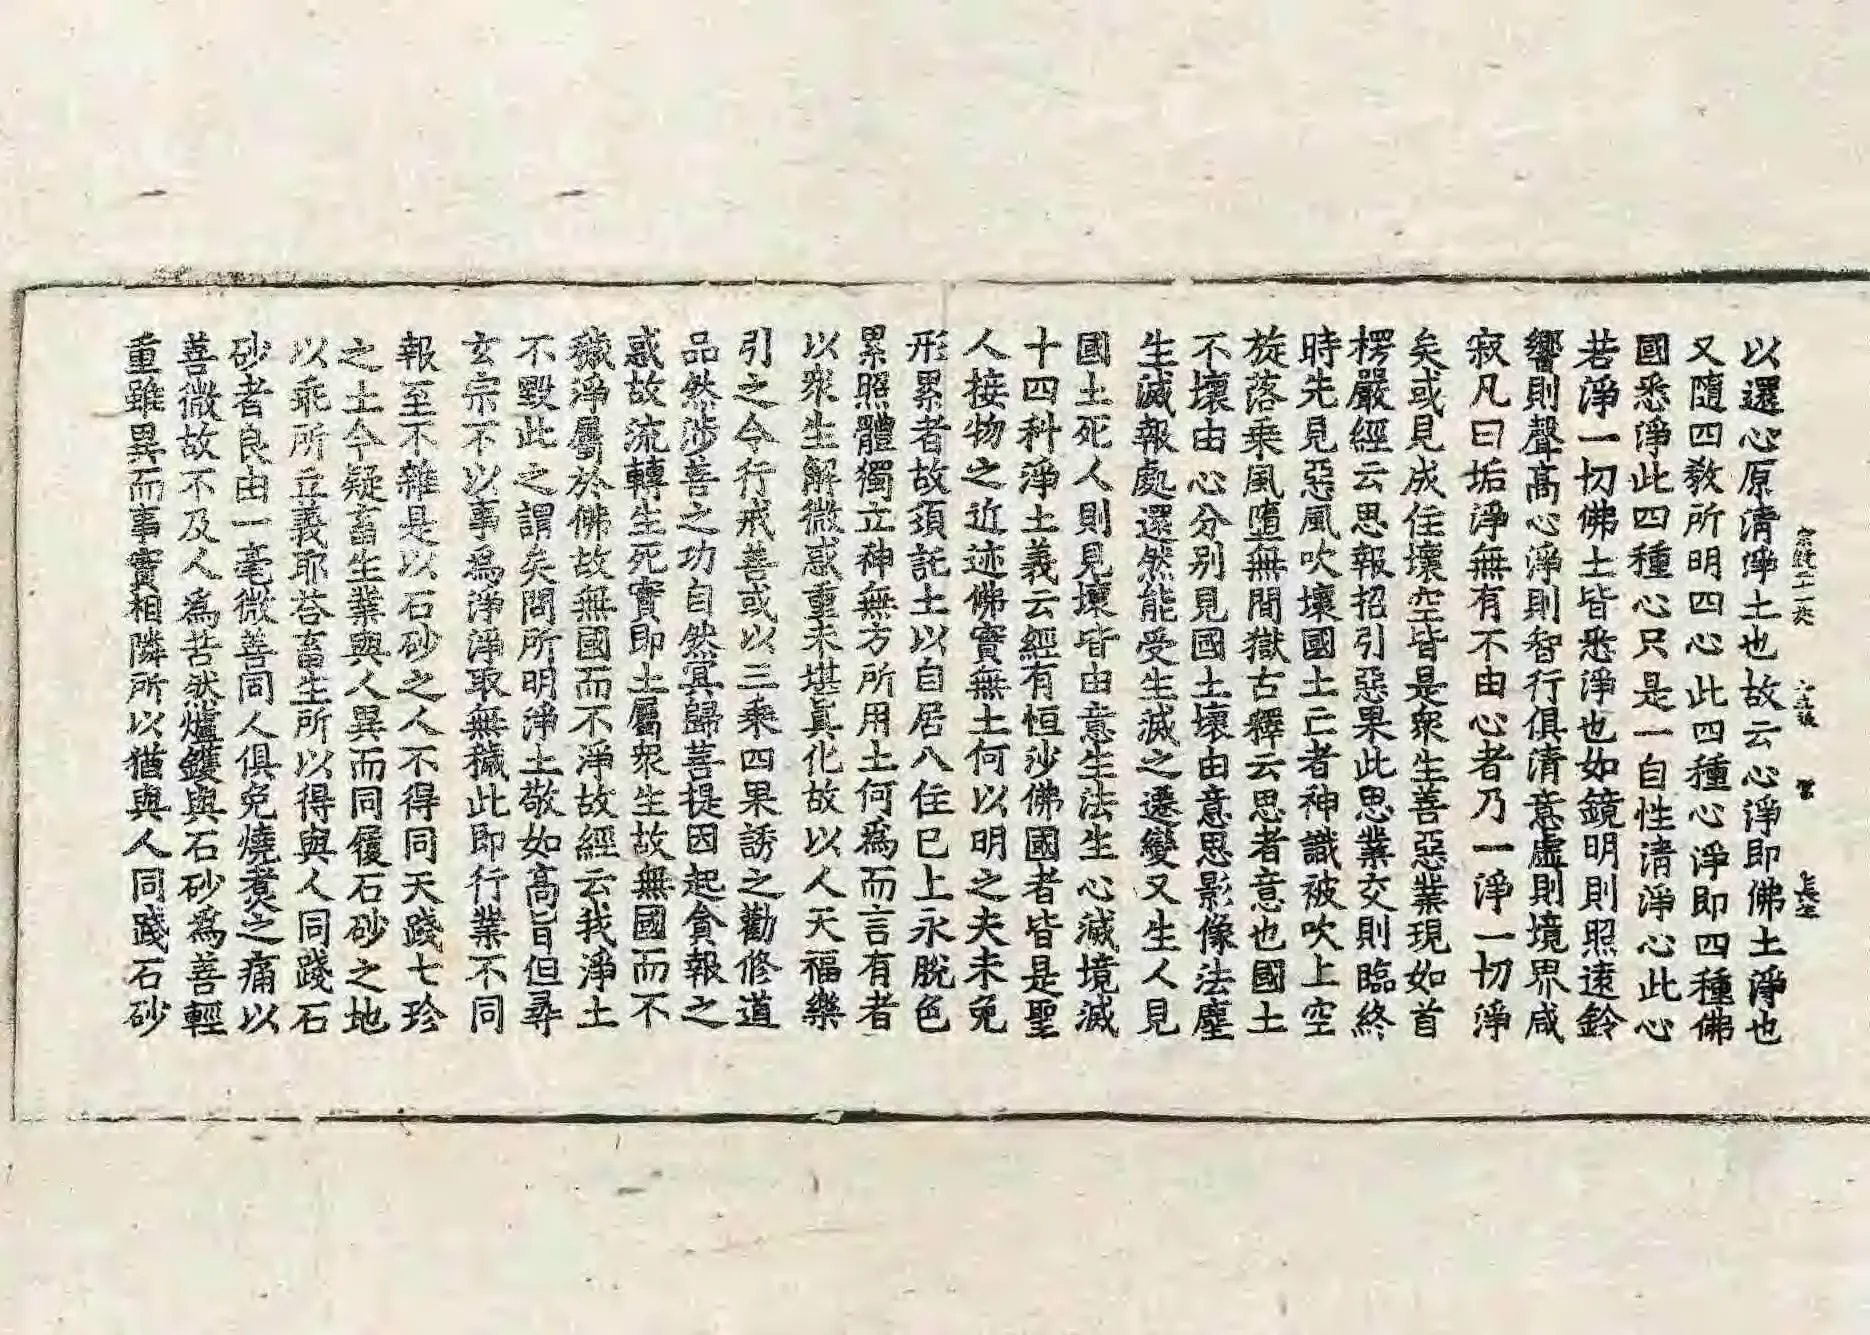 以還心原清淨土也故云心淨即佛土淨也
又隨四教所明四心此四種心淨即四種佛
國悉淨此四種心只是一自性清淨心此心
若淨一切佛土皆悉淨也如鏡明則照遠鈴
響則聲高心淨則智行俱清意虛則境界咸
寂凡曰垢淨無有不由心者乃一淨一切淨
矣或見成住壞空皆是衆生善惡業現如首
楞嚴經云思報招引惡果此思業交則臨終
時先見惡風吹壞國土亡者神識被吹上空
旋落乘風墮無間獄古釋云思者意也國土
不壞由心分別見國土壞由意思影像法塵
生滅報處還然能受生滅之遷變又生人見
國土死人則見壞皆由意生法生心滅境滅
十四科淨土義云經有恒沙佛國者皆是聖
人接物之近迹佛實無土何以明之夫未免
形累者故須託土以自居八住已上永脫色
累照體獨立神無方所用土何爲而言有者
以衆生解微惑重未堪真化故以人天福樂
引之令行戒善或以三乘四果誘之勸修道
品然涉善之功自然冥歸菩提因起貪報之
惑故流轉生死實即土屬衆生故無國而不
穢淨屬於佛故無國而不淨故經云我淨土
不毀此之謂矣問所明淨土敬如高旨但尋
玄宗不以事爲淨淨取無穢此即行業不同
報至不雜是以石砂之人不得同天踐七珍
之土今疑畜生業與人異而同履石砂之地
以乖所立義耶荅畜生所以得與人同踐石
砂者良由一毫微善同人俱免燒煑之痛以
善微故不及人爲苦然爐鑊與石砂爲善輕
重雖異而事實相隣所以猶與人同踐石砂